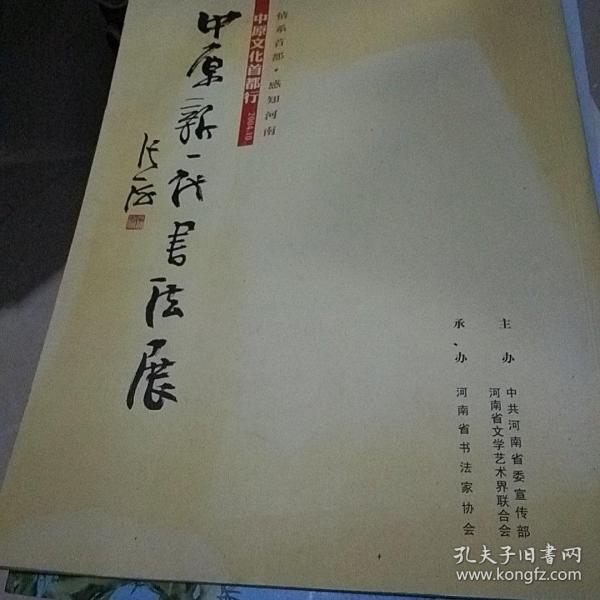 情系首都·感知河南
中原文化首都行 2004.10
中原新一代书法展
张海
主办
中共河南省委宣传部
河南省文学艺术界联合会
承办
河南省书法家协会
孔夫子旧书网
www.kongfz.com